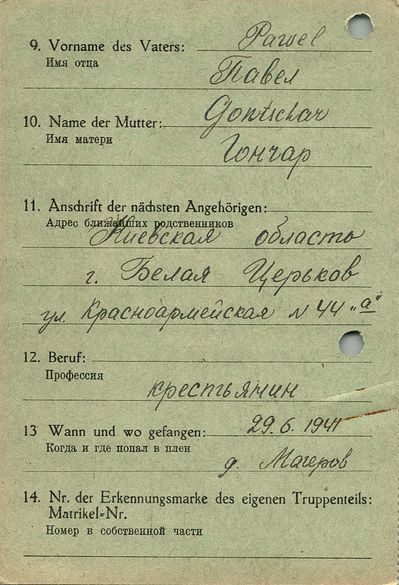 9. Vorname des Vaters: Pawel
Имя отца
Павел
10. Name der Mutter: Gontschar
Имя матери
Гончар
11. Anschrift der nächsten Angehörigen:
Адрес ближайших родственников
Киевская область
г. Белая Церьков
ул. Красноармейская № 44 „а"
12. Beruf:
Профессия
крестьянин
13 Wann und wo gefangen: 29.6.1941
Когда и где попал в плен
д. Магеров
14. Nr. der Erkennungsmarke des eigenen Truppenteils:
Matrikel-Nr.
Номер в собственной части